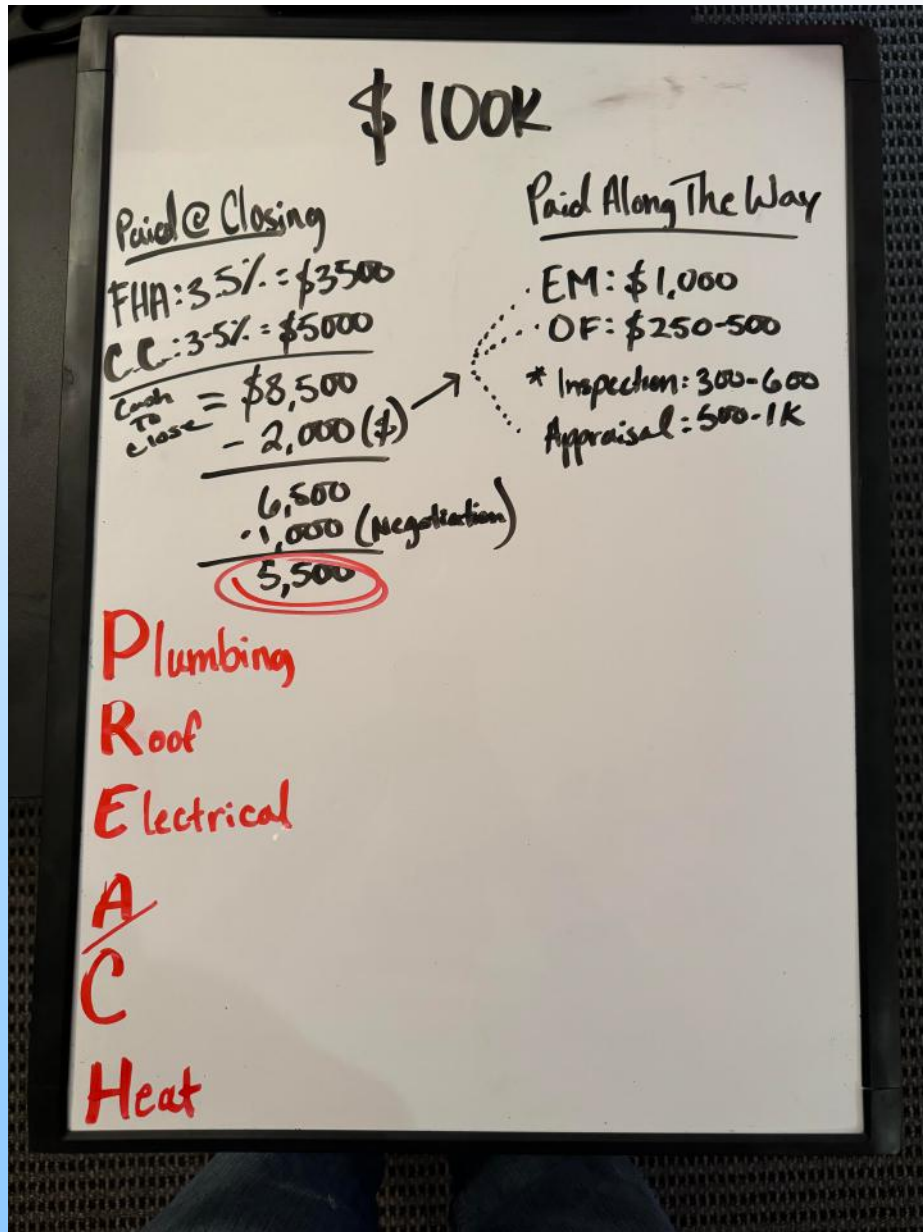 $ 100K
Paid @ Closing
FHA: 3.5% = $3500
C.C.: 3-5% = $5000
Cash To close = $8,500
- 2,000 ($)
6,500
-1,000 (Negotiation)
5,500
Paid Along The Way
EM: $1,000
OF: $250-500
* Inspection: 300-600
Appraisal: 500-1K
Plumbing
Roof
Electrical
A/C
Heat